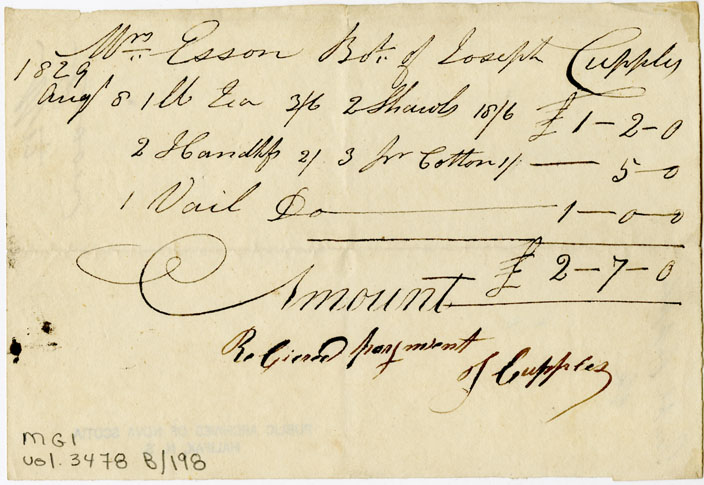 Mrs Esson Bot. of Joseph Cupples
1829
Augt 8 1 lb Tea 3/6 2 Shawls 18/6 £ 1-2-0
2 Handkfs 2/ 3 pr Cotton 1/ — 5-0
1 Vail Do — 1-0-0
Amount £ 2-7-0
Recieved payment
J Cupples
PUBLIC ARCHIVES OF NOVA SCOTIA
HALIFAX, N. S.
MG1
vol. 3478 B/198